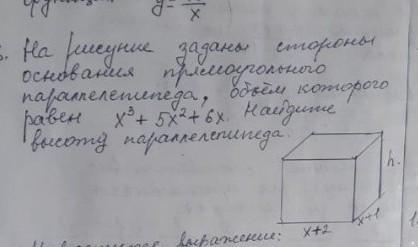 y=
x
3. На рисунке заданы стороны
основания прямоугольного
параллелепипеда, объём которого
равен x³ + 5x² + 6x. Найдите
высоту параллелепипеда.
h.
x+1
x+2
выражение: